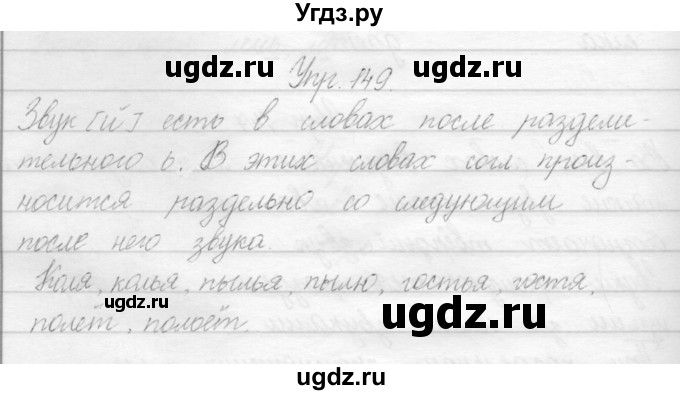 Угдз.ру
ugdz.ru ugdz.ru
Упр. 149.
Звук [й'] есть в словах после раздели-
тельного ь. В этих словах согл произ-
носится раздельно со следующим
после него звука.
Коля, колья, пылья, пылю, гостья, гостя,
ugdz.ru ugdz.ru
полёт, полоёт.
ugdz.ru